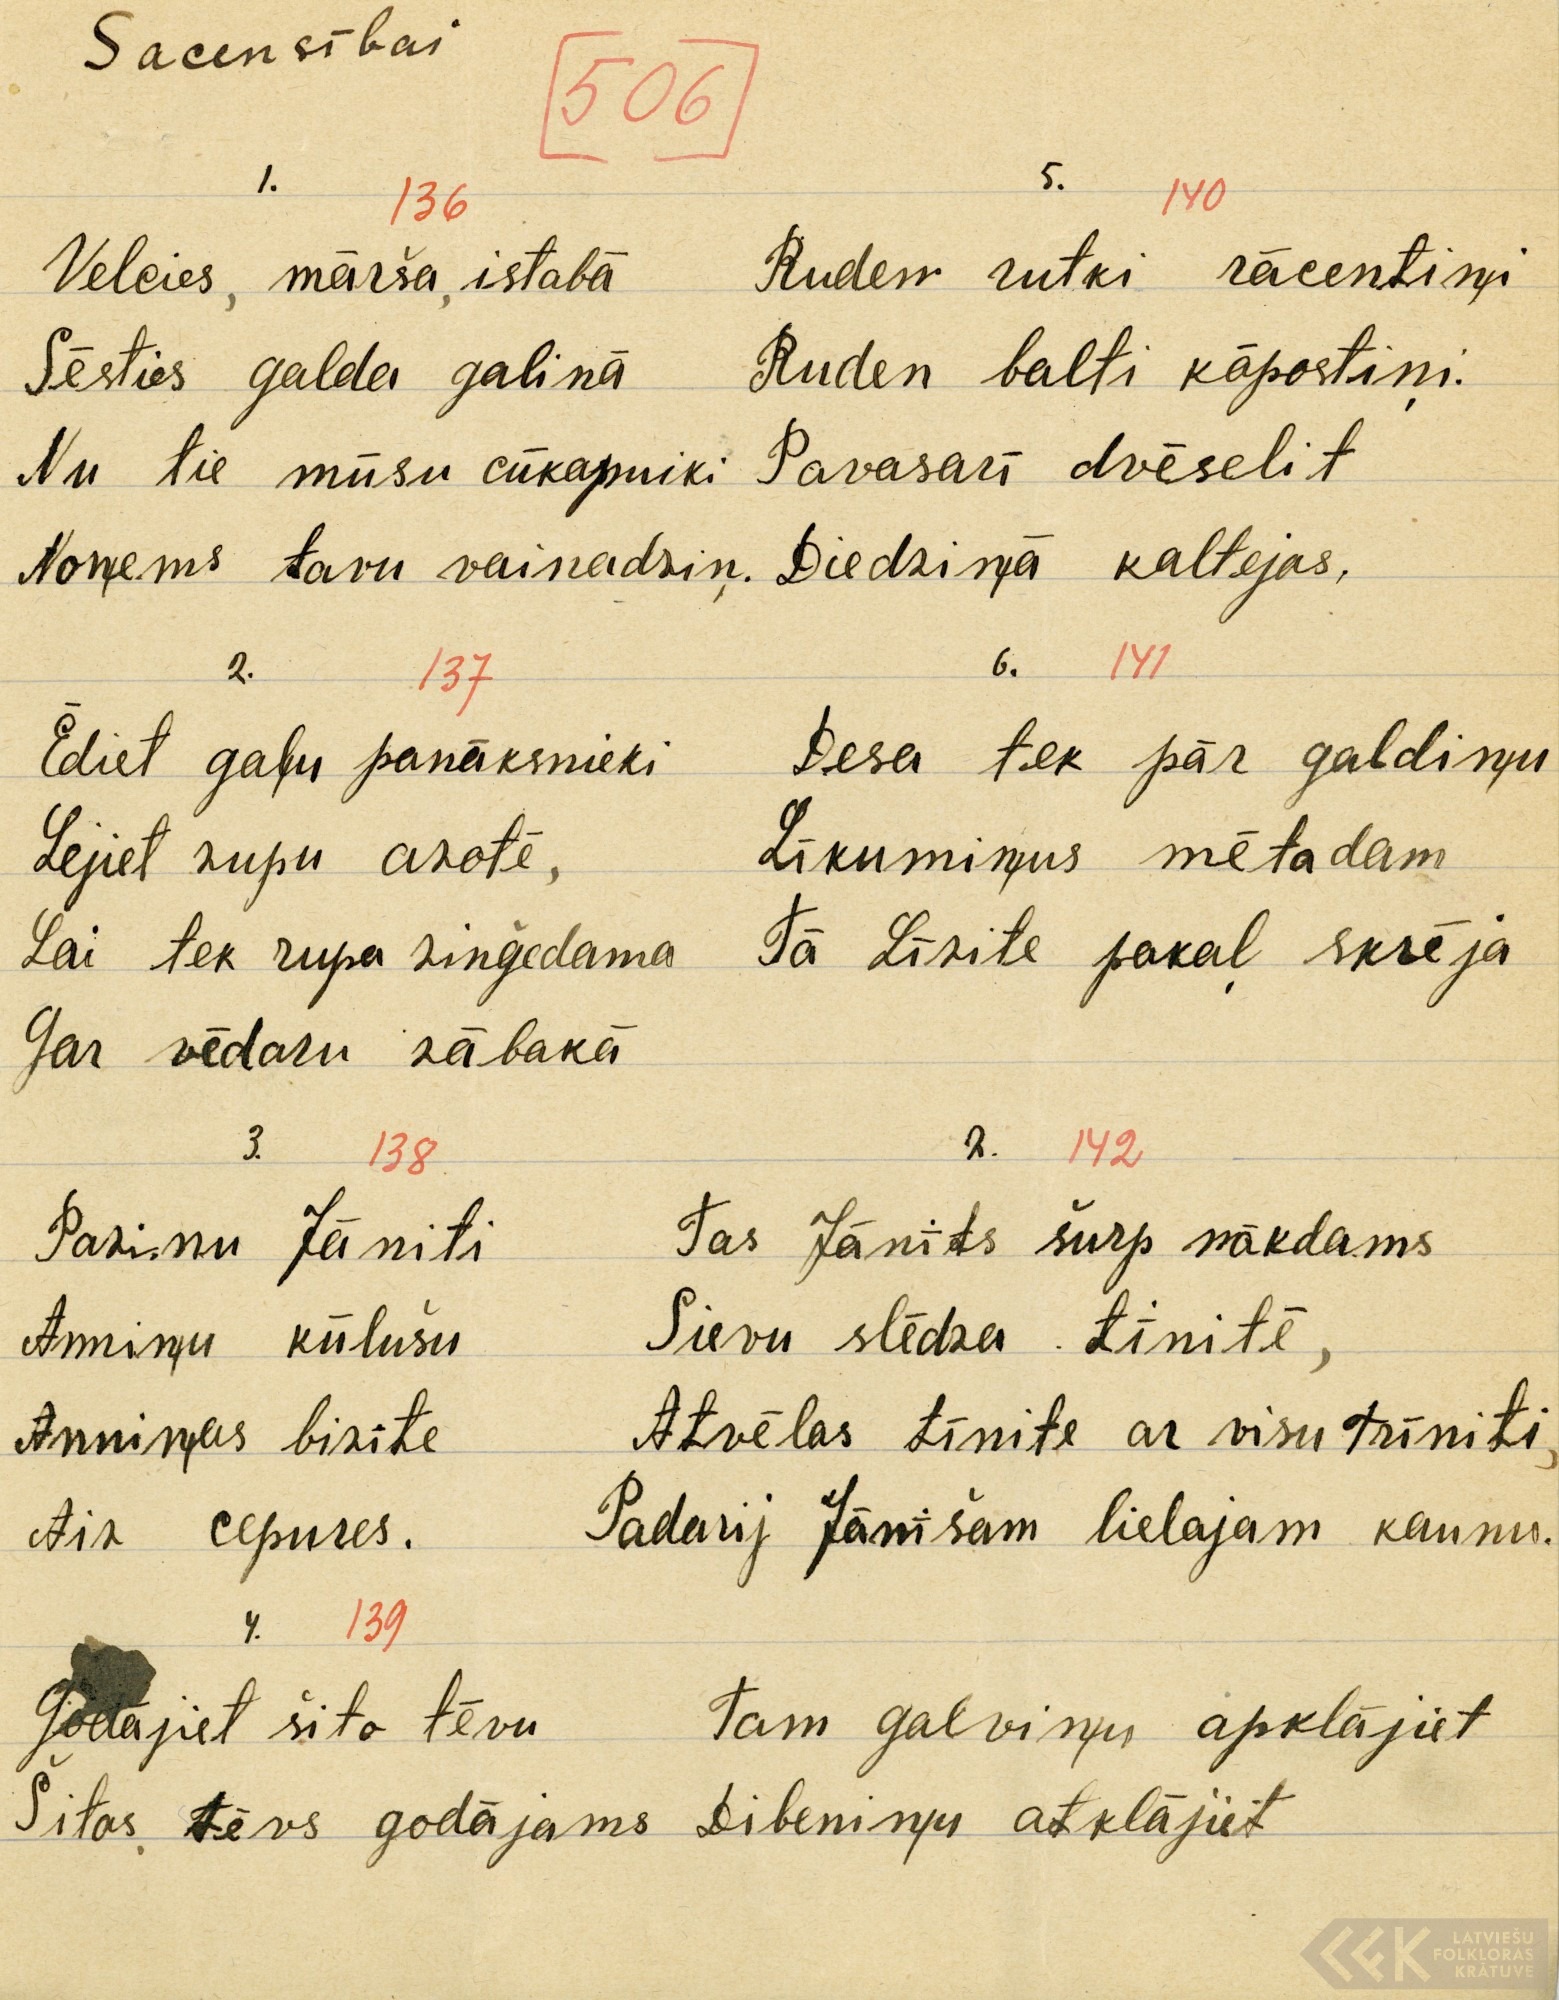 Sacensībai
506
1. 136
Velcies, mārša, istabā
Sēsties galda galinā
Nu tie mūsu cūkapuiki
Noņems tavu vainadziņ.
2. 137
Ēdiet gaļu panāksnieki
Lejiet zupu azotē,
Lai tek zupa ziņģedama
Gar vēdaru zābakā
3. 138
Pazinu Jāniti
Anniņu kūlušu
Anniņas bizīte
Aiz cepures.
4. 139
Godājiet šito tēvu
Šitas tēvs godājams
Tam galviņu apklājiet
Dibeniņu atklājiet
5. 140
Ruden rutki rācentiņi
Ruden balti kāpostiņi.
Pavasarī dvēselit
Diedziņā kaltejas,
6. 141
Desa tek pār galdiņu
Līkumiņus mētadam
Tā Līzite pakaļ skrēja
2. 142
Tas Jānīts šurp nākdams
Sievu slēdza tīnitē,
Atvēlas tīnite ar visu Trīniti,
Padarij Jānīšam lielajam kaunu.
LATVIEŠU
FOLKLORAS
KRĀTUVE